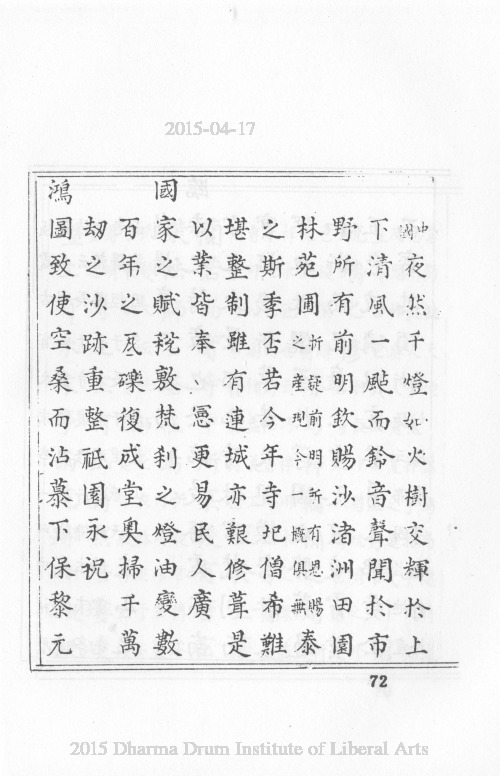 2015-04-17
中國夜然千燈如火樹交輝扵上
下清風一颭而鈴音聲聞扵市
野所有前明欽賜沙渚洲田園
林苑圃折疑前明所有恩賜之產現今一概俱無泰
之斯季否若今年寺圯僧希難
堪整制雖有連城亦艱修葺是
以業皆奉憲更易民人廣
國家之賦稅敷梵剎之燈油變數
百年之瓦礫復成堂奧掃千萬
劫之沙跡重整祇園永祝
鴻圖致使空桑而沾慕下保黎元
72
2015 Dharma Drum Institute of Liberal Arts